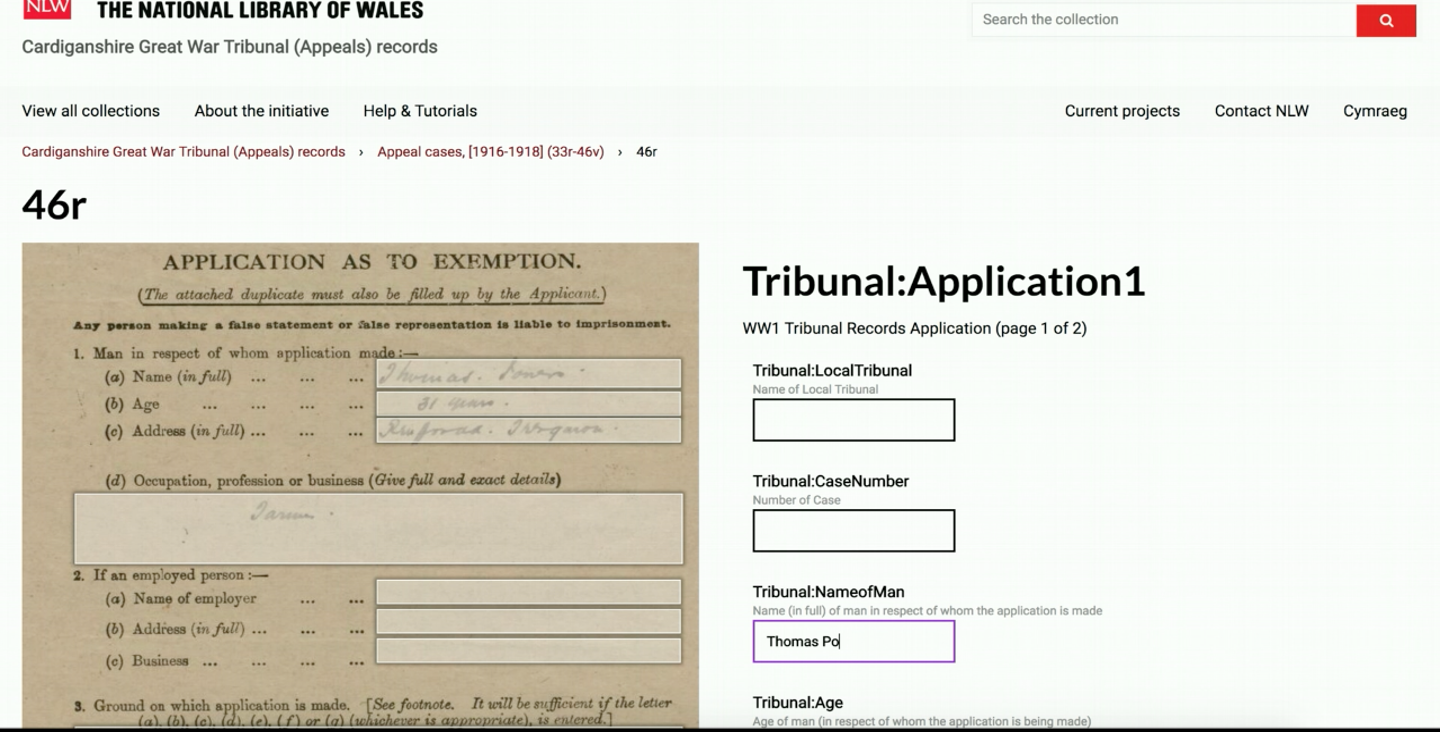 NLW THE NATIONAL LIBRARY OF WALES
Cardiganshire Great War Tribunal (Appeals) records
Search the collection
View all collections About the initiative Help & Tutorials Current projects Contact NLW Cymraeg
Cardiganshire Great War Tribunal (Appeals) records › Appeal cases, [1916-1918] (33r-46v) › 46r
46r
APPLICATION AS TO EXEMPTION.
(The attached duplicate must also be filled up by the Applicant.)
Any person making a false statement or false representation is liable to imprisonment.
1. Man in respect of whom application made:—
(a) Name (in full) ... ... ... Thomas.
(b) Age ... ... ... ... 31 years.
(c) Address (in full) ... ... ...
(d) Occupation, profession or business (Give full and exact details)
Farmer.
2. If an employed person:—
(a) Name of employer ... ...
(b) Address (in full) ... ... ...
(c) Business ... ... ... ...
3. Ground on which application is made. [See footnote. It will be sufficient if the letter
(a), (b), (c), (d), (e), (f) or (g) (whichever is appropriate), is entered.]
Tribunal:Application1
WW1 Tribunal Records Application (page 1 of 2)
Tribunal:LocalTribunal
Name of Local Tribunal
Tribunal:CaseNumber
Number of Case
Tribunal:NameofMan
Name (in full) of man in respect of whom the application is made
Thomas Po
Tribunal:Age
Age of man (in respect of whom the application is being made)